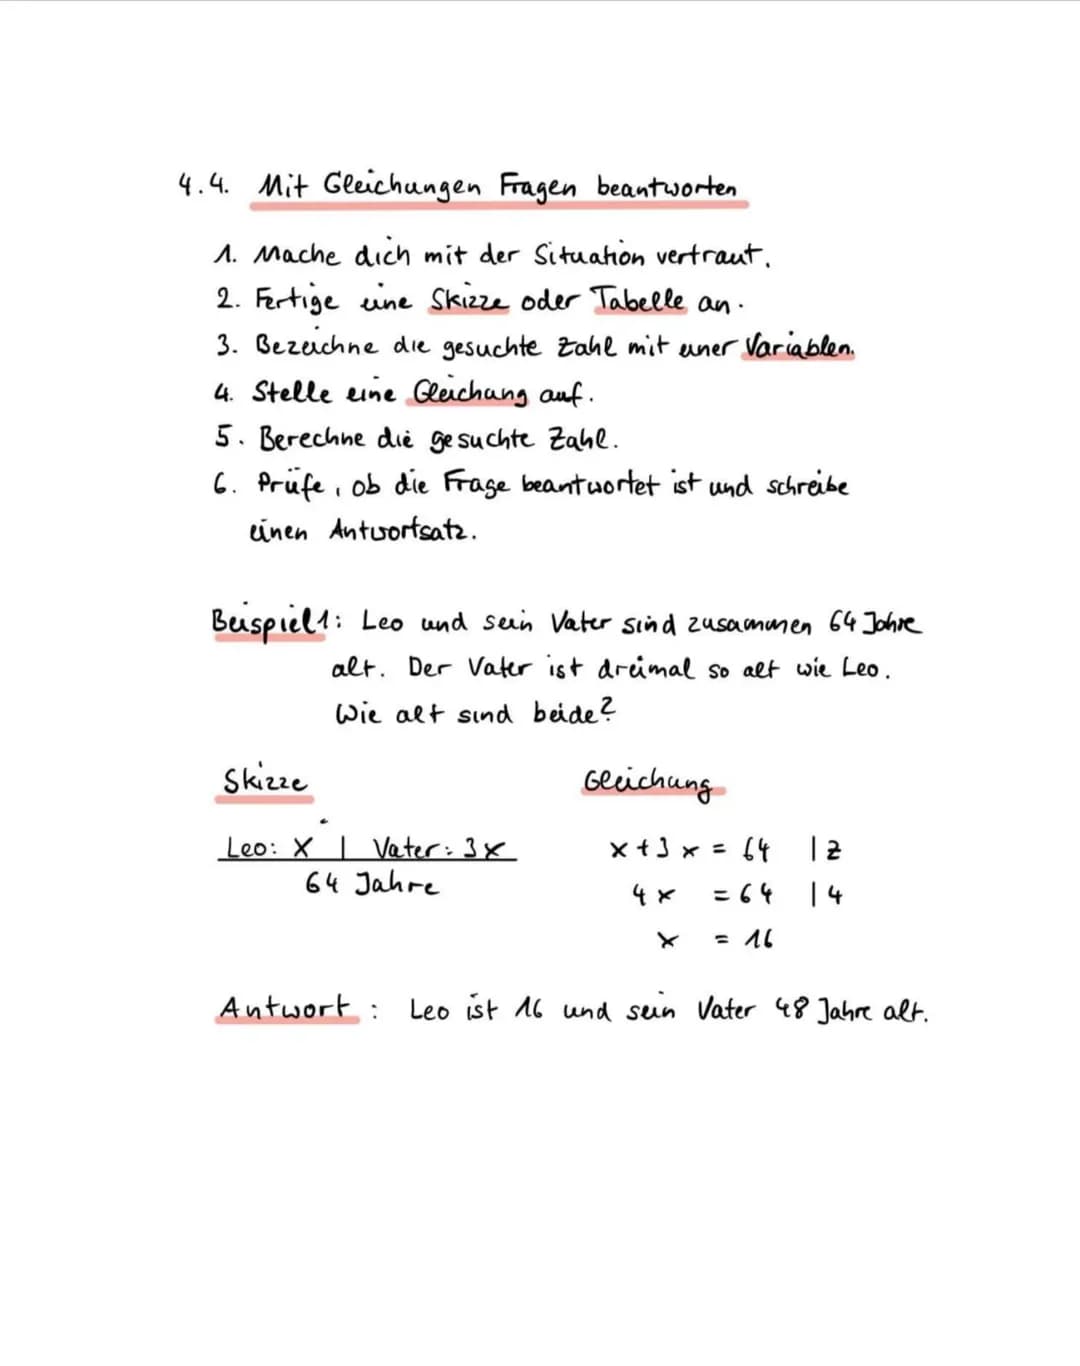 4.4. Mit Gleichungen Fragen beantworten
1. Mache dich mit der Situation vertraut.
2. Fertige eine Skizze oder Tabelle an.
3. Bezeichne die gesuchte Zahl mit einer Variablen.
4. Stelle eine Gleichung auf.
5. Berechne die gesuchte Zahl.
6. Prüfe, ob die Frage beantwortet ist und schreibe
einen Antwortsatz.
Beispiel 1: Leo und sein Vater sind zusammen 64 Jahre
alt. Der Vater ist dreimal so alt wie Leo.
Wie alt sind beide?
Skizze Gleichung
Leo: x | Vater: 3x
64 Jahre
x + 3x = 64 | z
4x = 64 | 4
x = 16
Antwort: Leo ist 16 und sein Vater 48 Jahre alt.